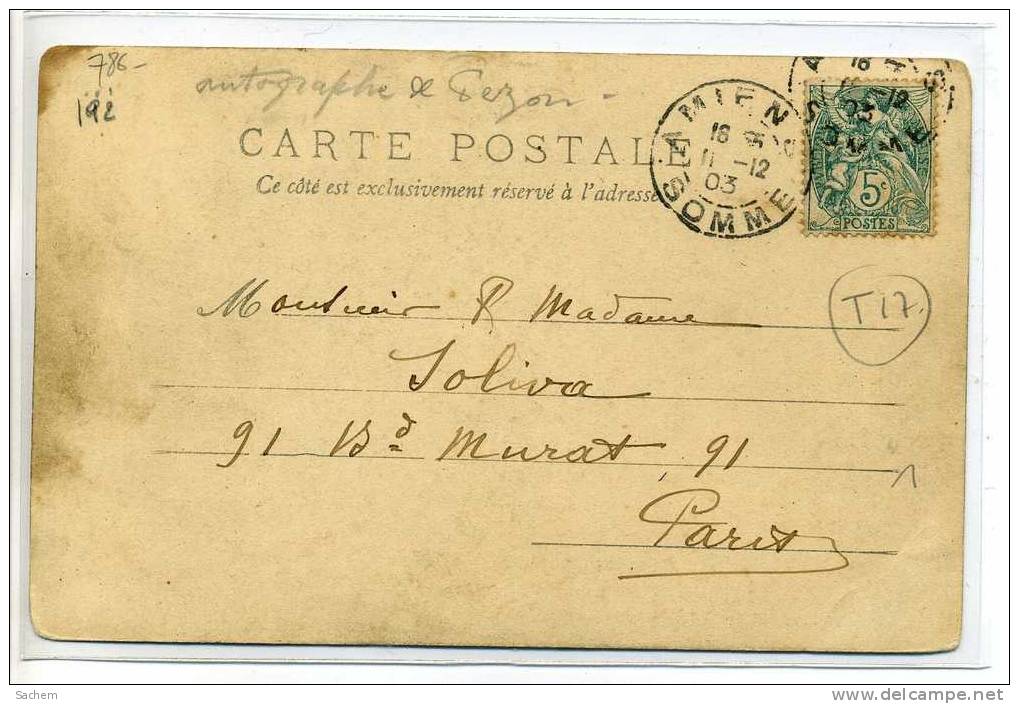 786-
192
autographe de Pezon -
CARTE POSTALE
Ce côté est exclusivement réservé à l'adresse
AMIENS
18
11 -12
03
SOMME
5c
POSTES
T17.
Monsieur & Madame
Soliva
91 Bd Murat 91
1
Paris
Sachem
delcampe.net